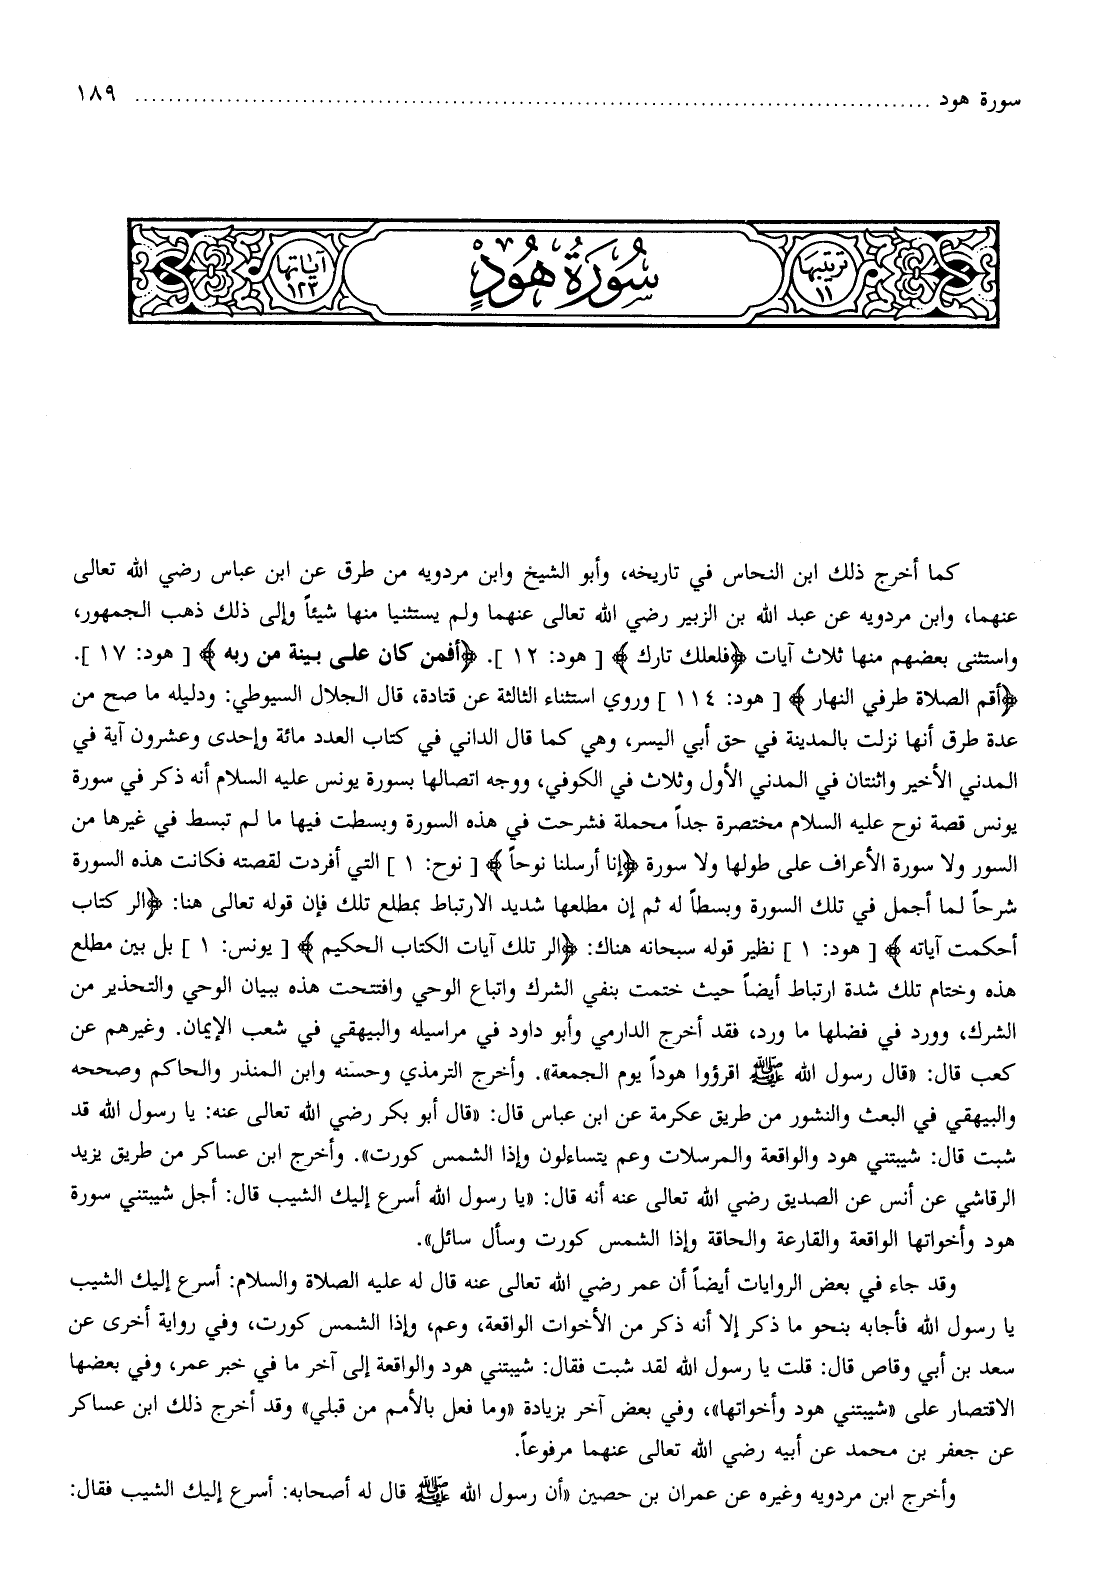 سورة هود ........................................................................................ ١٨٩
ترتيبها
١١
سُورَةُ هُودٍ
آياتها
١٢٣
كما أخرج ذلك ابن النحاس في تاريخه، وأبو الشيخ وابن مردويه من طرق عن ابن عباس رضي الله تعالى
عنهما، وابن مردويه عن عبد الله بن الزبير رضي الله تعالى عنهما ولم يستثنيا منها شيئاً وإلى ذلك ذهب الجمهور،
واستثنى بعضهم منها ثلاث آيات ﴿فلعلك تارك﴾ [ هود: ١٢ ]. ﴿أفمن كان على بينة من ربه﴾ [ هود: ١٧ ].
﴿أقم الصلاة طرفي النهار﴾ [ هود: ١١٤ ] وروي استثناء الثالثة عن قتادة، قال الجلال السيوطي: ودليله ما صح من
عدة طرق أنها نزلت بالمدينة في حق أبي اليسر، وهي كما قال الداني في كتاب العدد مائة وإحدى وعشرون آية في
المدني الأخير واثنتان في المدني الأول وثلاث في الكوفي، ووجه اتصالها بسورة يونس عليه السلام أنه ذكر في سورة
يونس قصة نوح عليه السلام مختصرة جداً محملة فشرحت في هذه السورة وبسطت فيها ما لم تبسط في غيرها من
السور ولا سورة الأعراف على طولها ولا سورة ﴿إنا أرسلنا نوحاً﴾ [ نوح: ١ ] التي أفردت لقصته فكانت هذه السورة
شرحاً لما أجمل في تلك السورة وبسطاً له ثم إن مطلعها شديد الارتباط بمطلع تلك فإن قوله تعالى هنا: ﴿الر كتاب
أحكمت آياته﴾ [ هود: ١ ] نظير قوله سبحانه هناك: ﴿الر تلك آيات الكتاب الحكيم﴾ [ يونس: ١ ] بل بين مطلع
هذه وختام تلك شدة ارتباط أيضاً حيث ختمت بنفي الشرك واتباع الوحي وافتتحت هذه ببيان الوحي والتحذير من
الشرك، وورد في فضلها ما ورد، فقد أخرج الدارمي وأبو داود في مراسيله والبيهقي في شعب الإيمان. وغيرهم عن
كعب قال: «قال رسول الله ﷺ اقرؤوا هوداً يوم الجمعة». وأخرج الترمذي وحسنه وابن المنذر والحاكم وصححه
والبيهقي في البعث والنشور من طريق عكرمة عن ابن عباس قال: «قال أبو بكر رضي الله تعالى عنه: يا رسول الله قد
شبت قال: شيبتني هود والواقعة والمرسلات وعم يتساءلون وإذا الشمس كورت». وأخرج ابن عساكر من طريق يزيد
الرقاشي عن أنس عن الصديق رضي الله تعالى عنه أنه قال: «يا رسول الله أسرع إليك الشيب قال: أجل شيبتني سورة
هود وأخواتها الواقعة والقارعة والحاقة وإذا الشمس كورت وسأل سائل».
وقد جاء في بعض الروايات أيضاً أن عمر رضي الله تعالى عنه قال له عليه الصلاة والسلام: أسرع إليك الشيب
يا رسول الله فأجابه بنحو ما ذكر إلا أنه ذكر من الأخوات الواقعة، وعم، وإذا الشمس كورت، وفي رواية أخرى عن
سعد بن أبي وقاص قال: قلت يا رسول الله لقد شبت فقال: شيبتني هود والواقعة إلى آخر ما في خبر عمر، وفي بعضها
الاقتصار على «شيبتني هود وأخواتها»، وفي بعض آخر بزيادة «وما فعل بالأمم من قبلي» وقد أخرج ذلك ابن عساكر
عن جعفر بن محمد عن أبيه رضي الله تعالى عنهما مرفوعاً.
وأخرج ابن مردويه وغيره عن عمران بن حصين «أن رسول الله ﷺ قال له أصحابه: أسرع إليك الشيب فقال: